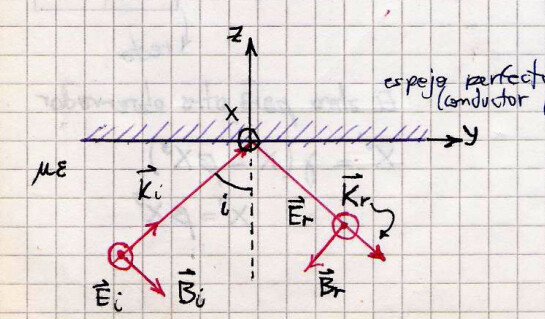 z
espejo perfecto
X
(conductor
y
με
K⃗i
i
E⃗r
K⃗r
E⃗i
B⃗i
B⃗r